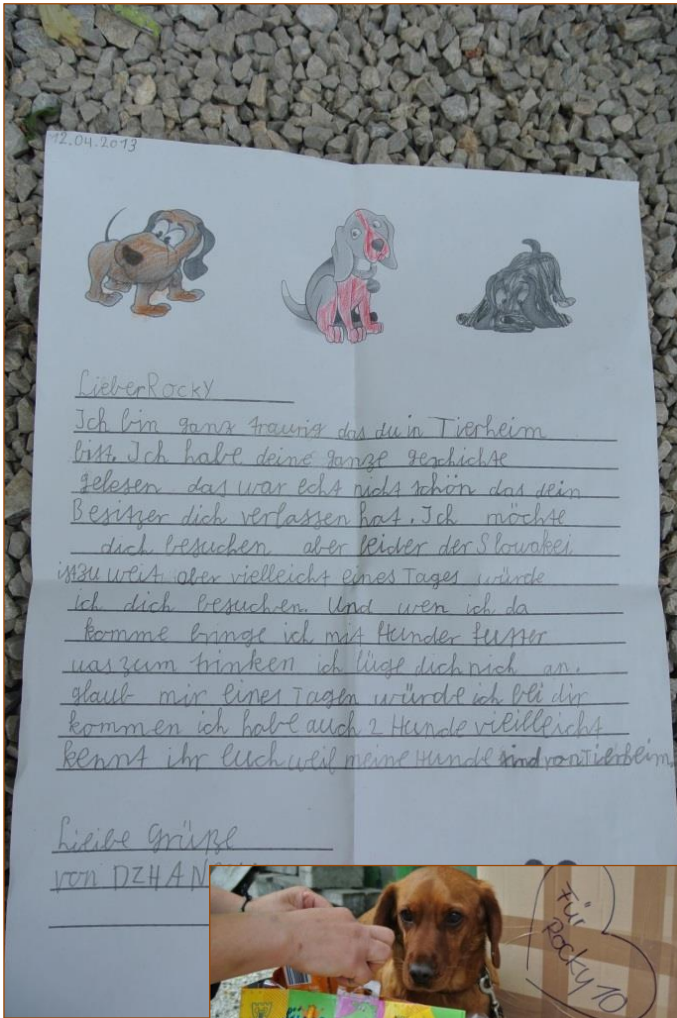 12.04.2013
Lieber Rocky
Ich bin ganz traurig das du in Tierheim
bist. Ich habe deine ganze geschichte
gelesen das war echt nicht schön das dein
Besitzer dich verlassen hat. Ich möchte
dich besuchen aber leider der Slowakei
ist zu weit aber vielleicht eines Tages würde
ich dich besuchen. Und wen ich da
komme bringe ich mit Hunder futter
uas zum trinken ich lüge dich nich an.
glaub mir eines Tagen würde ich bei dir
kommen ich habe auch 2 Hunde vieilleicht
kennt ihr euch weil meine Hunde sind von Tierheim.
Lieibe Grüße
von
Für
Rocky 10